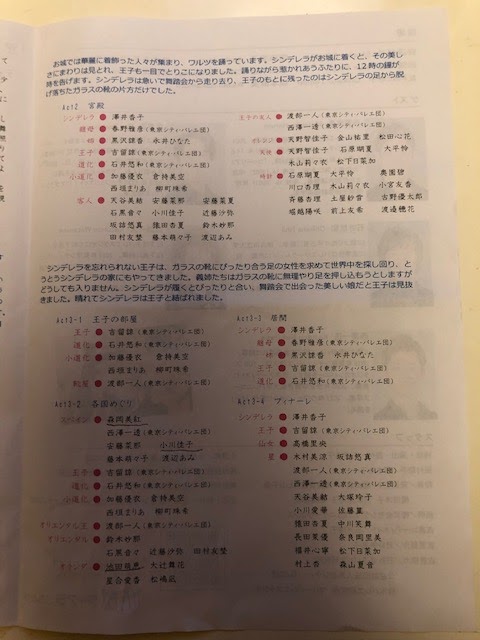 お城では華麗に着飾った人々が集まり、ワルツを踊っています。シンデレラがお城に着くと、その美しさにまわりは見とれ、王子も一目でとりこになりました。踊りながら惹かれあうふたりに、12時の鐘が時を告げます。シンデレラは急いで舞踏会から走り去り、王子のもとに残ったのはシンデレラの足から脱げ落ちたガラスの靴の片方だけでした。
Act2 宮殿
シンデレラ ● 澤井香子
継母 ● 春野雅彦(東京シティ・バレエ団)
姉 ● 黒沢諒香 永井ひなた
王子 ● 吉留諒(東京シティ・バレエ団)
道化 ● 石井悠和(東京シティ・バレエ団)
小道化 ● 加藤優衣 倉持美空
西垣まりあ 柳町珠希
客人 ● 天谷美結 安藤菜那 安藤菜夏
石黒音々 小川佳子 近藤沙弥
坂詰悠真 猿田杏夏 鈴木紗耶
田村友埜 藤本萌々子 渡辺あみ
王子の友人 ● 渡部一人(東京シティ・バレエ団)
西澤一透(東京シティ・バレエ団)
● 天野智佳子 金山祐里 松田心花
● 天野智佳子 石原瑚夏 大平怜
水山莉々衣 松下日菜加
時計 ● 石原瑚夏 大平怜 奥園碧
川口杏理 水山莉々衣 小宮友香
斉藤杏理 土屋紗音 古野優太郎
堀越陽咲 前上友希 渡邉穂花
シンデレラを忘れられない王子は、ガラスの靴にぴったり合う足の女性を求めて世界中を探し回り、とうとうシンデレラの家にもやってきました。義姉たちはガラスの靴に無理やり足を押し込もうとしますがどうしても入りません。シンデレラが履くとぴったりと合い、舞踏会で出会った美しい娘だと王子は見抜きました。晴れてシンデレラは王子と結ばれました。
Act3-1 王子の部屋
王子 ● 吉留諒(東京シティ・バレエ団)
道化 ● 石井悠和(東京シティ・バレエ団)
小道化 ● 加藤優衣 倉持美空
西垣まりあ 柳町珠希
靴屋 ● 渡部一人(東京シティ・バレエ団)
Act3-2 各国めぐり
スパニッシュ ● 森岡美紅
西澤一透(東京シティ・バレエ団)
安藤菜那 小川佳子
藤本萌々子 渡辺あみ
王子 ● 吉留諒(東京シティ・バレエ団)
道化 ● 石井悠和(東京シティ・バレエ団)
小道化 ● 加藤優衣 倉持美空
西垣まりあ 柳町珠希
オリエンタル王 ● 渡部一人(東京シティ・バレエ団)
オリエンタル ● 鈴木紗耶
石黒音々 近藤沙弥 田村友埜
オランダ ● 池田萌恵 大辻舞花
星合愛香 松嶋凪
Act3-3 居間
シンデレラ ● 澤井香子
継母 ● 春野雅彦(東京シティ・バレエ団)
姉 ● 黒沢諒香 永井ひなた
王子 ● 吉留諒(東京シティ・バレエ団)
道化 ● 石井悠和(東京シティ・バレエ団)
Act3-4 フィナーレ
シンデレラ ● 澤井香子
王子 ● 吉留諒(東京シティ・バレエ団)
仙女 ● 高橋里央
星 ● 木村美涼 坂詰悠真
渡部一人(東京シティ・バレエ団)
西澤一透(東京シティ・バレエ団)
天谷美結 大塚玲子
小川愛華 佐藤菫
猿田杏夏 中川芙舞
長田茉優 奈良岡里美
福井心寧 松下日菜加
村上杏 森山夏音